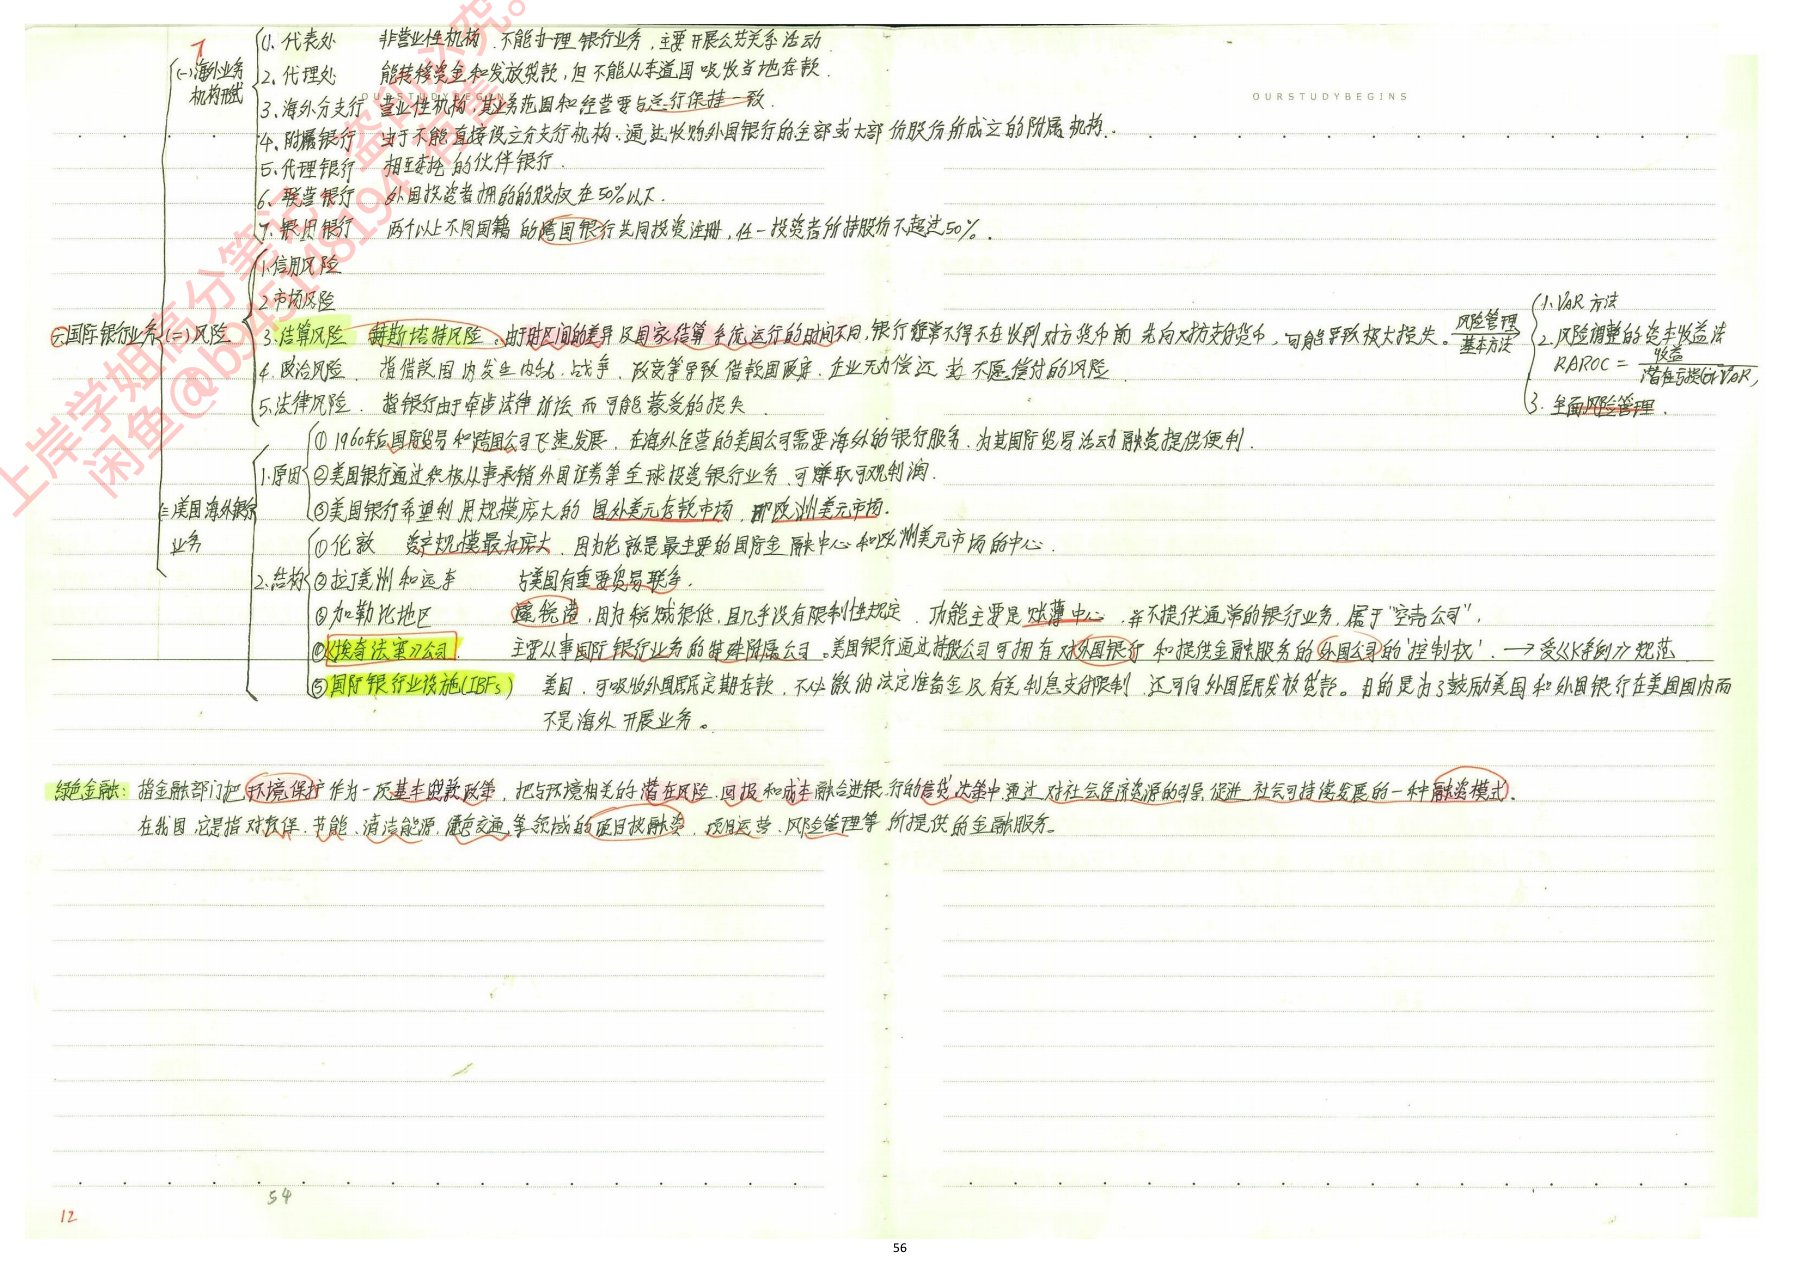 7
(一)海外业务
机构形式
1. 代表处 非营业性机构，不能办理银行业务，主要开展公共关系活动
2. 代理处 能转移资金和发放贷款，但不能从东道国吸收当地存款．
OURSTUDYBEGINS
OURSTUDYBEGINS
3. 海外分支行 营业性机构，其业务范围和经营要与总行保持一致．
4. 附属银行 由于不能直接设立分支行机构，通过收购外国银行的全部或大部份股份所成立的附属机构．
5. 代理银行 相互委托的伙伴银行．
6. 联营银行 外国投资者拥的的股权在50%以下．
7. 银团银行 两个以上不同国籍的跨国银行共同投资注册，任一投资者所持股份不超过50%．
六国际银行业务
(二)风险
1. 信用风险
2. 市场风险
3. 结算风险 赫斯塔特风险。由于时区间的差异及国家结算系统运行的时间不同，银行经常不得不在收到对方货币前先向对方支付货币，可能导致极大损失。
风险管理
基本方法
1. VAR 方法
2. 风险调整的资本收益法
RAROC = 收益 / 潜在亏损(or VAR)
3. 全面风险管理．
4. 政治风险． 指借款国内发生内乱、战争、政变等导致借款国政府、企业无力偿还或不愿偿付的风险．
5. 法律风险． 指银行由于牵涉法律诉讼而可能蒙受的损失．
三美国海外银行
业务
1. 原因
① 1960年后国际贸易和跨国公司飞速发展，在海外经营的美国公司需要海外的银行服务，为其国际贸易活动融资提供便利．
②美国银行通过积极从事承销外国证券等全球投资银行业务，可赚取可观利润．
③美国银行希望利用规模庞大的国外美元存款市场，即欧洲美元市场．
2. 结构
①伦敦 资产规模最为庞大，因为伦敦是最主要的国际金融中心和欧洲美元市场的中心．
②拉丁美洲和远东 与美国有重要贸易联系．
③加勒比地区 避税港，因为税赋很低，且几乎没有限制性规定．功能主要是账薄中心，并不提供通常的银行业务，属于"空壳公司"．
④《埃奇法案》公司． 主要从事国际银行业务的特殊附属公司。美国银行通过持股公司可拥有对外国银行和提供金融服务的外国公司的'控制权'．→受《K条例》规范
⑤国际银行业设施(IBFs) 美国，可吸收外国居民定期存款，不必缴纳法定准备金及有关利息支付限制，还可向外国居民发放贷款。目的是为了鼓励美国和外国银行在美国国内而
不是海外开展业务。
绿色金融：指金融部门把环境保护作为一项基本贷款政策，把与环境相关的潜在风险、回报和成本融合进银行的信贷决策中，通过对社会经济资源的引导，促进社会可持续发展的一种融资模式．
在我国，它是指对环保、节能、清洁能源、绿色交通等领域的项目投融资、项目运营、风险管理等所提供的金融服务。
上岸学姐高分笔记，盗印必究。
闲鱼@b945148194 有售
54
12
56